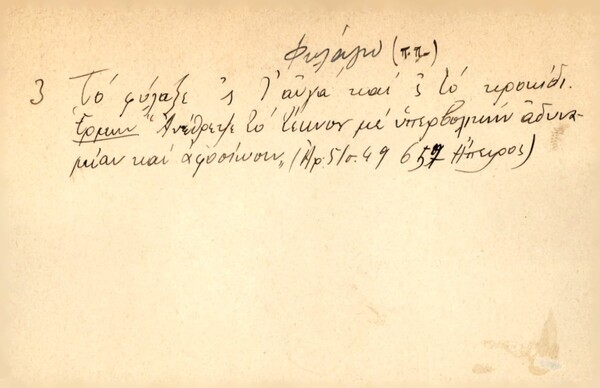 Φυλάγω (π.π.)
3 Τό φύλαξε 'ς τ' αὐγά καί 'ς τό κροκίδι.
Ἑρμην "Ἀνέθρεψε τό τέκνον με ὑπερβολικήν ἀδυνα-
μίαν καί ἀφοσίωσιν" (Ἀρ. 51 σ. 49 657 Ἤπειρος)